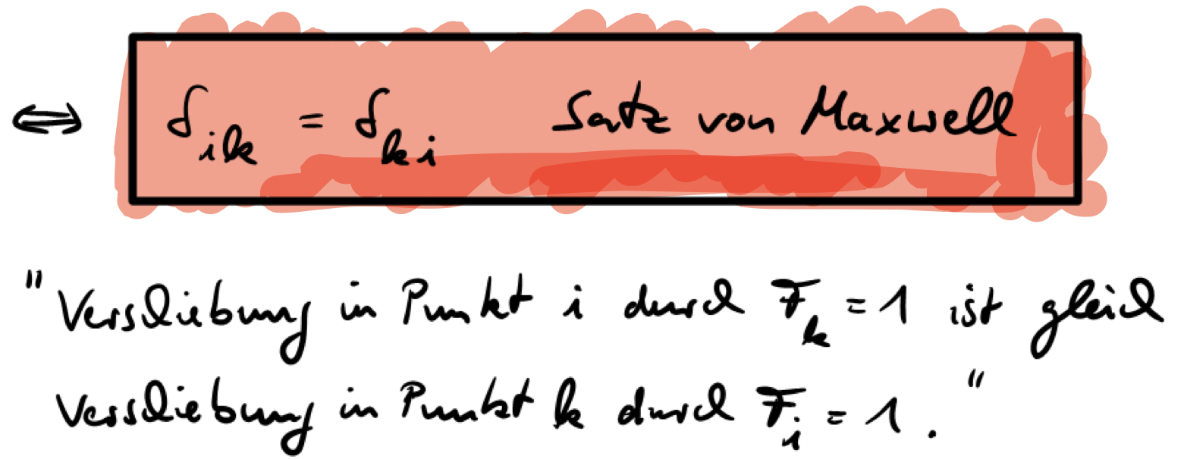 ⇔ δ_ik = δ_ki Satz von Maxwell
"Verschiebung in Punkt i durch F_k = 1 ist gleich
Verschiebung in Punkt k durch F_i = 1."